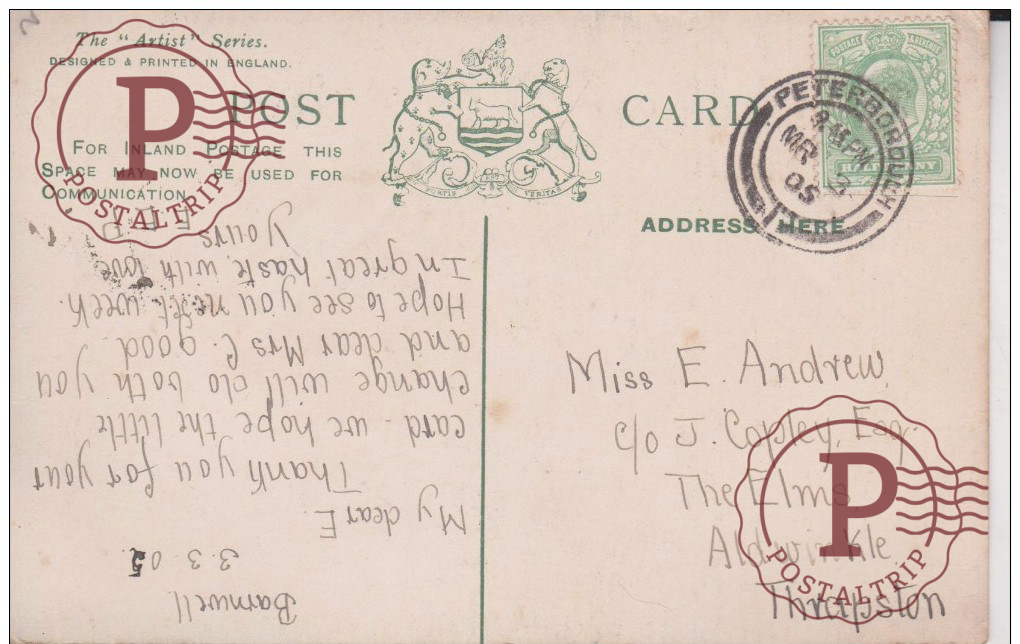 The "Artist" Series.
DESIGNED & PRINTED IN ENGLAND.
POST CARD
FOR INLAND POSTAGE THIS
SPACE MAY NOW BE USED FOR
COMMUNICATION
ADDRESS HERE
POSTAGE & REVENUE
PETERBOROUGH
PM
05
VERITAS
Barnwell
3.3.05
My dear E
Thank you for your
card. we hope the little
change will do both you
and dear Mrs C. good.
Hope to see you next week.
In great haste, with love
Yours
Miss E. Andrew,
c/o J. Copley, Esq.
The Elms,
Aldwinkle
Thrapston
P
POSTALTRIP
P
POSTALTRIP